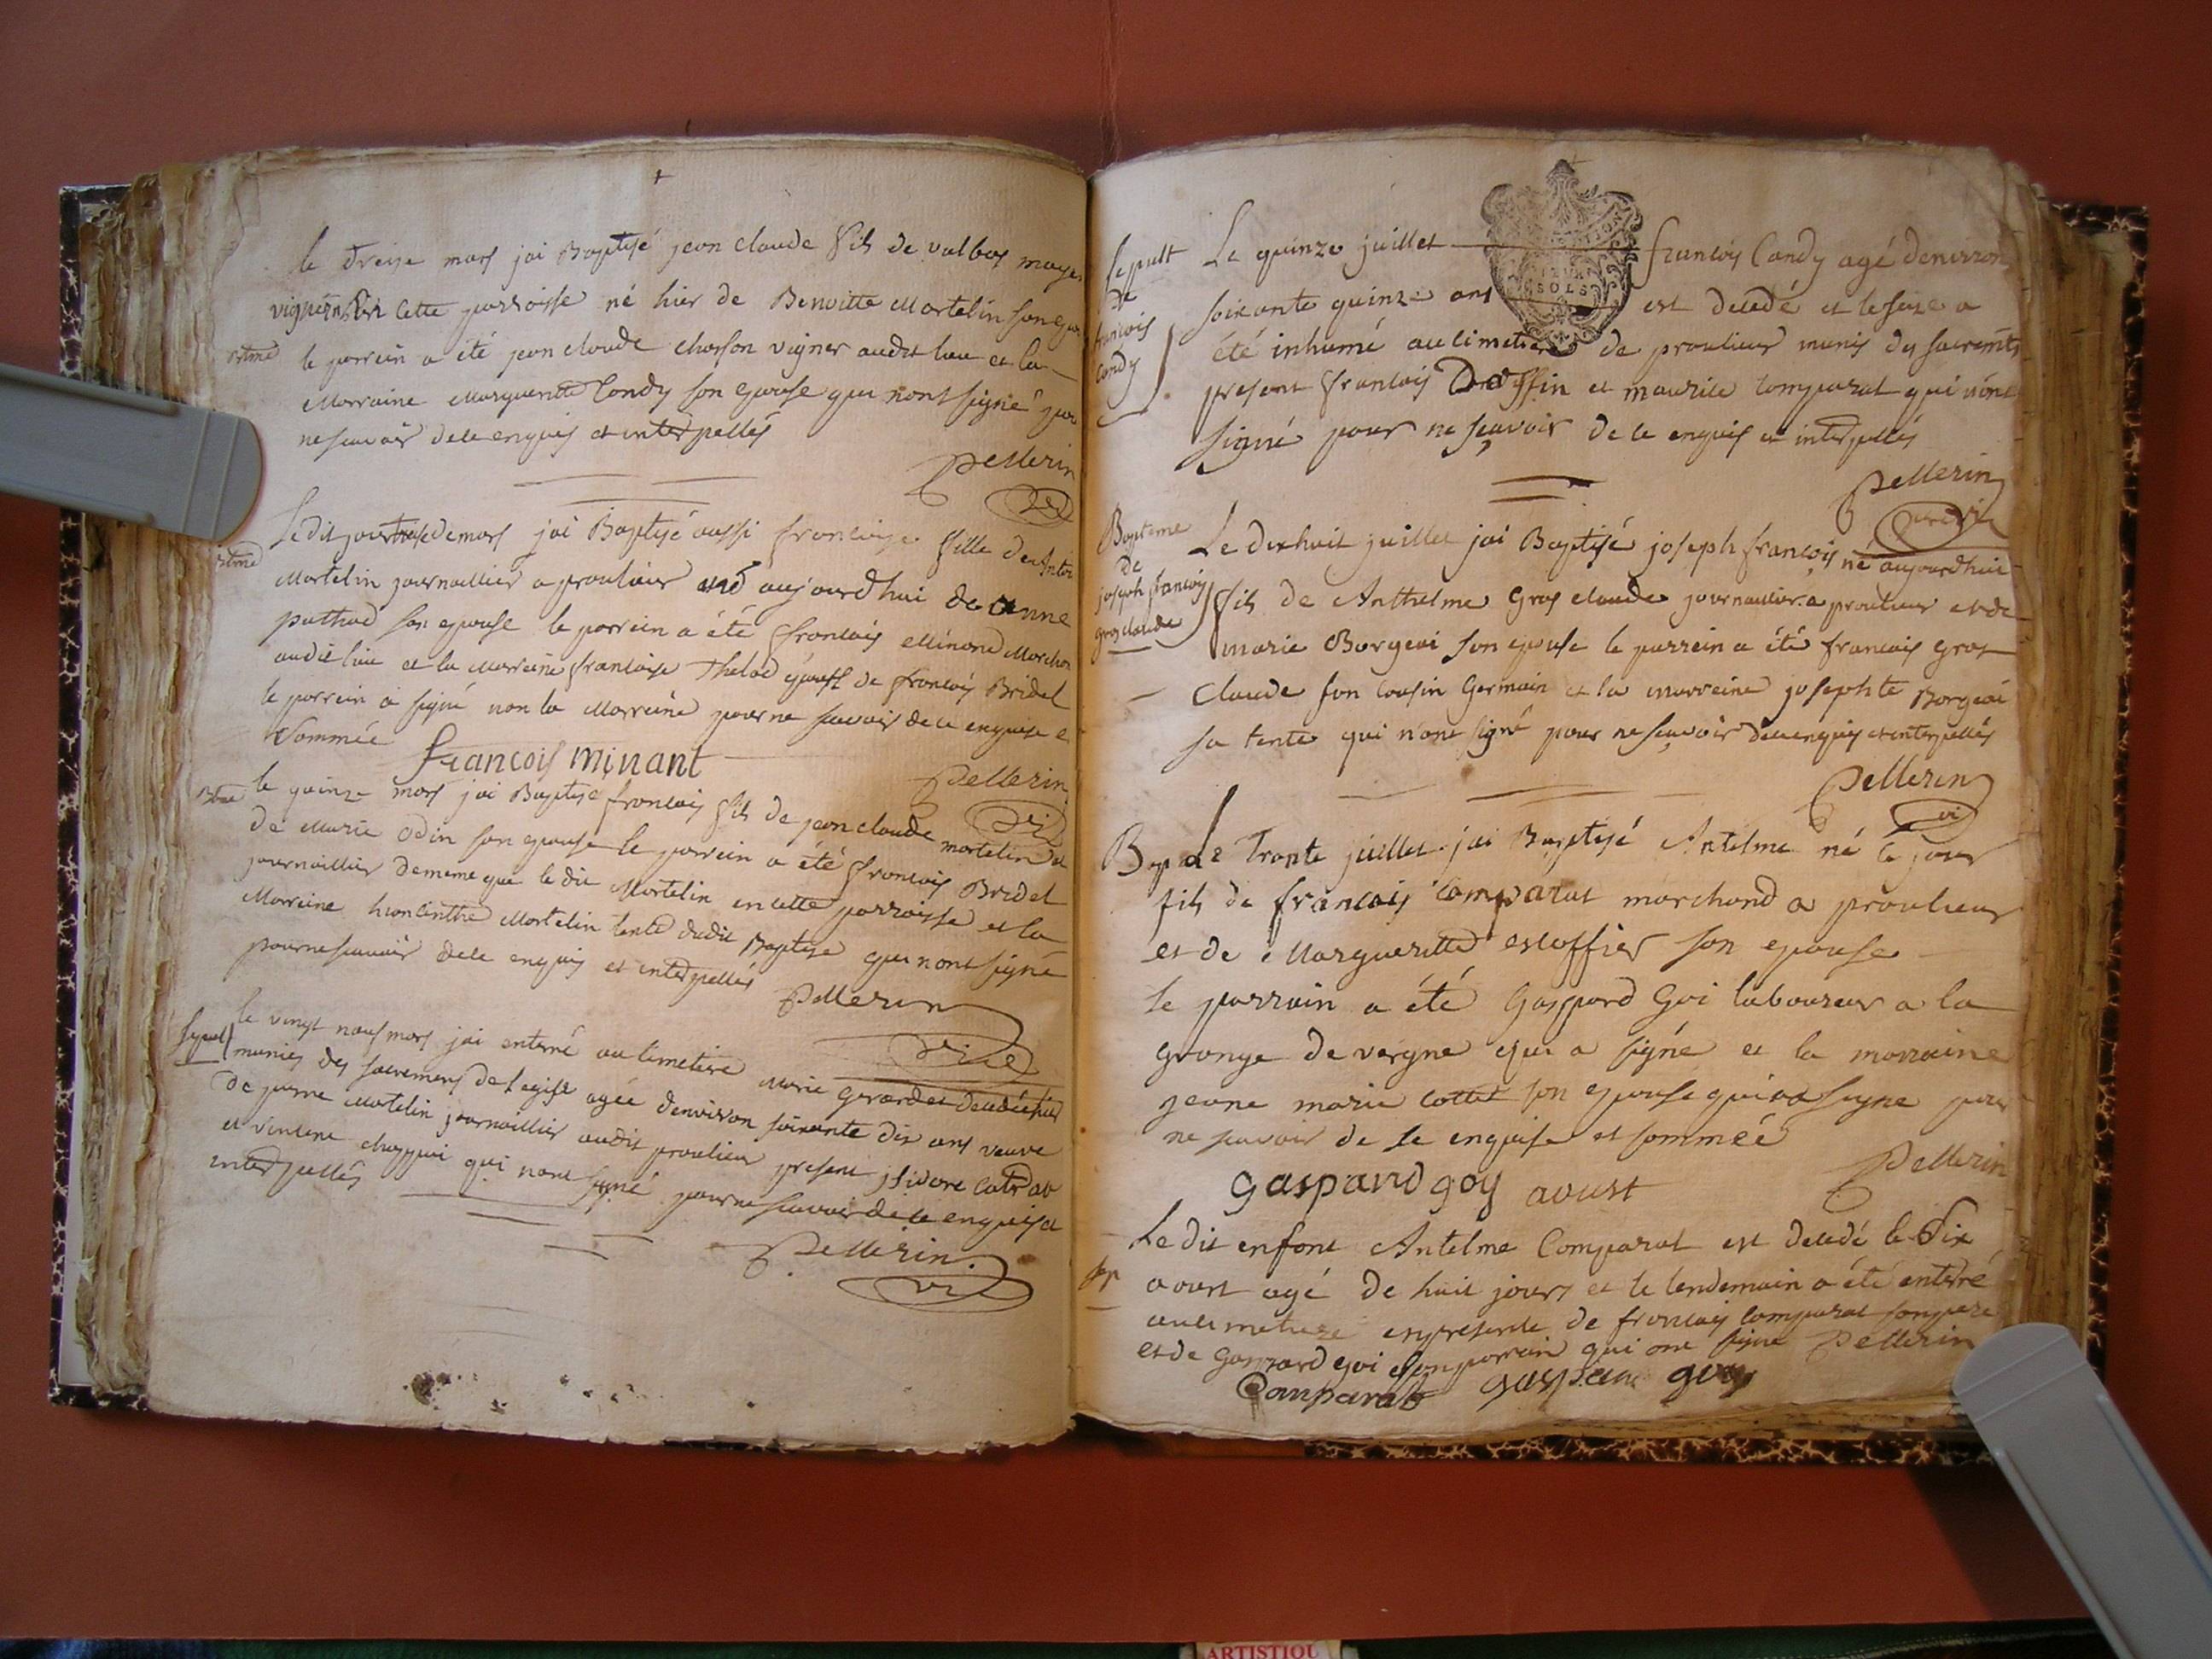 le treize mars jai Baptisé jean claude fils de valbas
vigneron cette parroisse né hier de Benoitte Martelin son
le parrein a été jean claude charson vigner audit lieu et la
Marraine Marguerite Candy son epouse qui nont signé pour
ne scavoir de ce enquis et interpellés
Pellerin
Le dit jour treise de mars jai Baptisé aussi francoise fille de
Martelin journaillier a proulieu né aujourdhui de anne
puthod son epouse le parrein a été francois Minand
audit lieu et la Marreine francoise Thelod epouse de francois Bridel
le parrein a signé non la Marreine pour ne scavoir de ce enquise e
sommée
francois minant
Pellerin
le quinze mars jai Baptisé francois fils de jean claude martelin et
de Marie Odin son epouse le parrein a été francois Bridel
journaillier de meme que le dit Martelin en cette parroisse et la
Marreine Martelin tente dudit Baptisé qui nont signé
pour ne scavoir de ce enquis et interpellés
Pellerin
Sepul
le vingt neuf mars jai enterré au cimetiere Marie Gerardet decedée hier
munies des sacremens de l'eglise agée denviron soixante dix ans veuve
de pierre Martelin journaillier audit proulieu present isidore
et vincent chappui qui nont signé pour ne scavoir de ce enquis et
interpellés
Pellerin
Sepult
de
francois
Candy
Le quinze juillet francois Candy agé denviron
soixante quinze ans est decedé et le seize a
SOLS
été inhumé au cimetiere de proulieur munis des sacremts
present francois Doffin et maurice comparat qui n'ont
signé pour ne sçavoir de ce enquis et interpellés
Pellerin
Bapteme
de
joseph francois
gros claude
Le dix huit juillet jai Baptisé joseph françois né aujourdhui
fils de Anthelme Gros claude journalier a proulieur et de
marie Borgeai son epouse le parrein a été francois gros
claude son cousin Germain et la marreine josephte Borgeai
sa tente qui n'ont signé pour ne sçavoir de ce enquis et interpellés
Pellerin
Bap
Le Trante juillet jai Baptisé Antelme né le jour
fils de francois Comparat marchand a proulieur
et de Margueritte escoffier son epouse
le parrain a été Gaspard Goi laboureur a la
grange de vergne qui a signé et la marraine
jeane marie cottet son epouse qui na signe pour
ne scavoir de ce enquise et sommeé
Pellerin
gaspard goy
aoust
Sep
Le dit enfant Antelme Comparat est decedé le Six
aoust agé de huit jours et le lendemain a été enterré
au cimetiere en presence de francois comparat son pere
et de Gaspard goi son parrain qui ont signe Pellerin
Comparat gaspard goy
ARTISTIQU